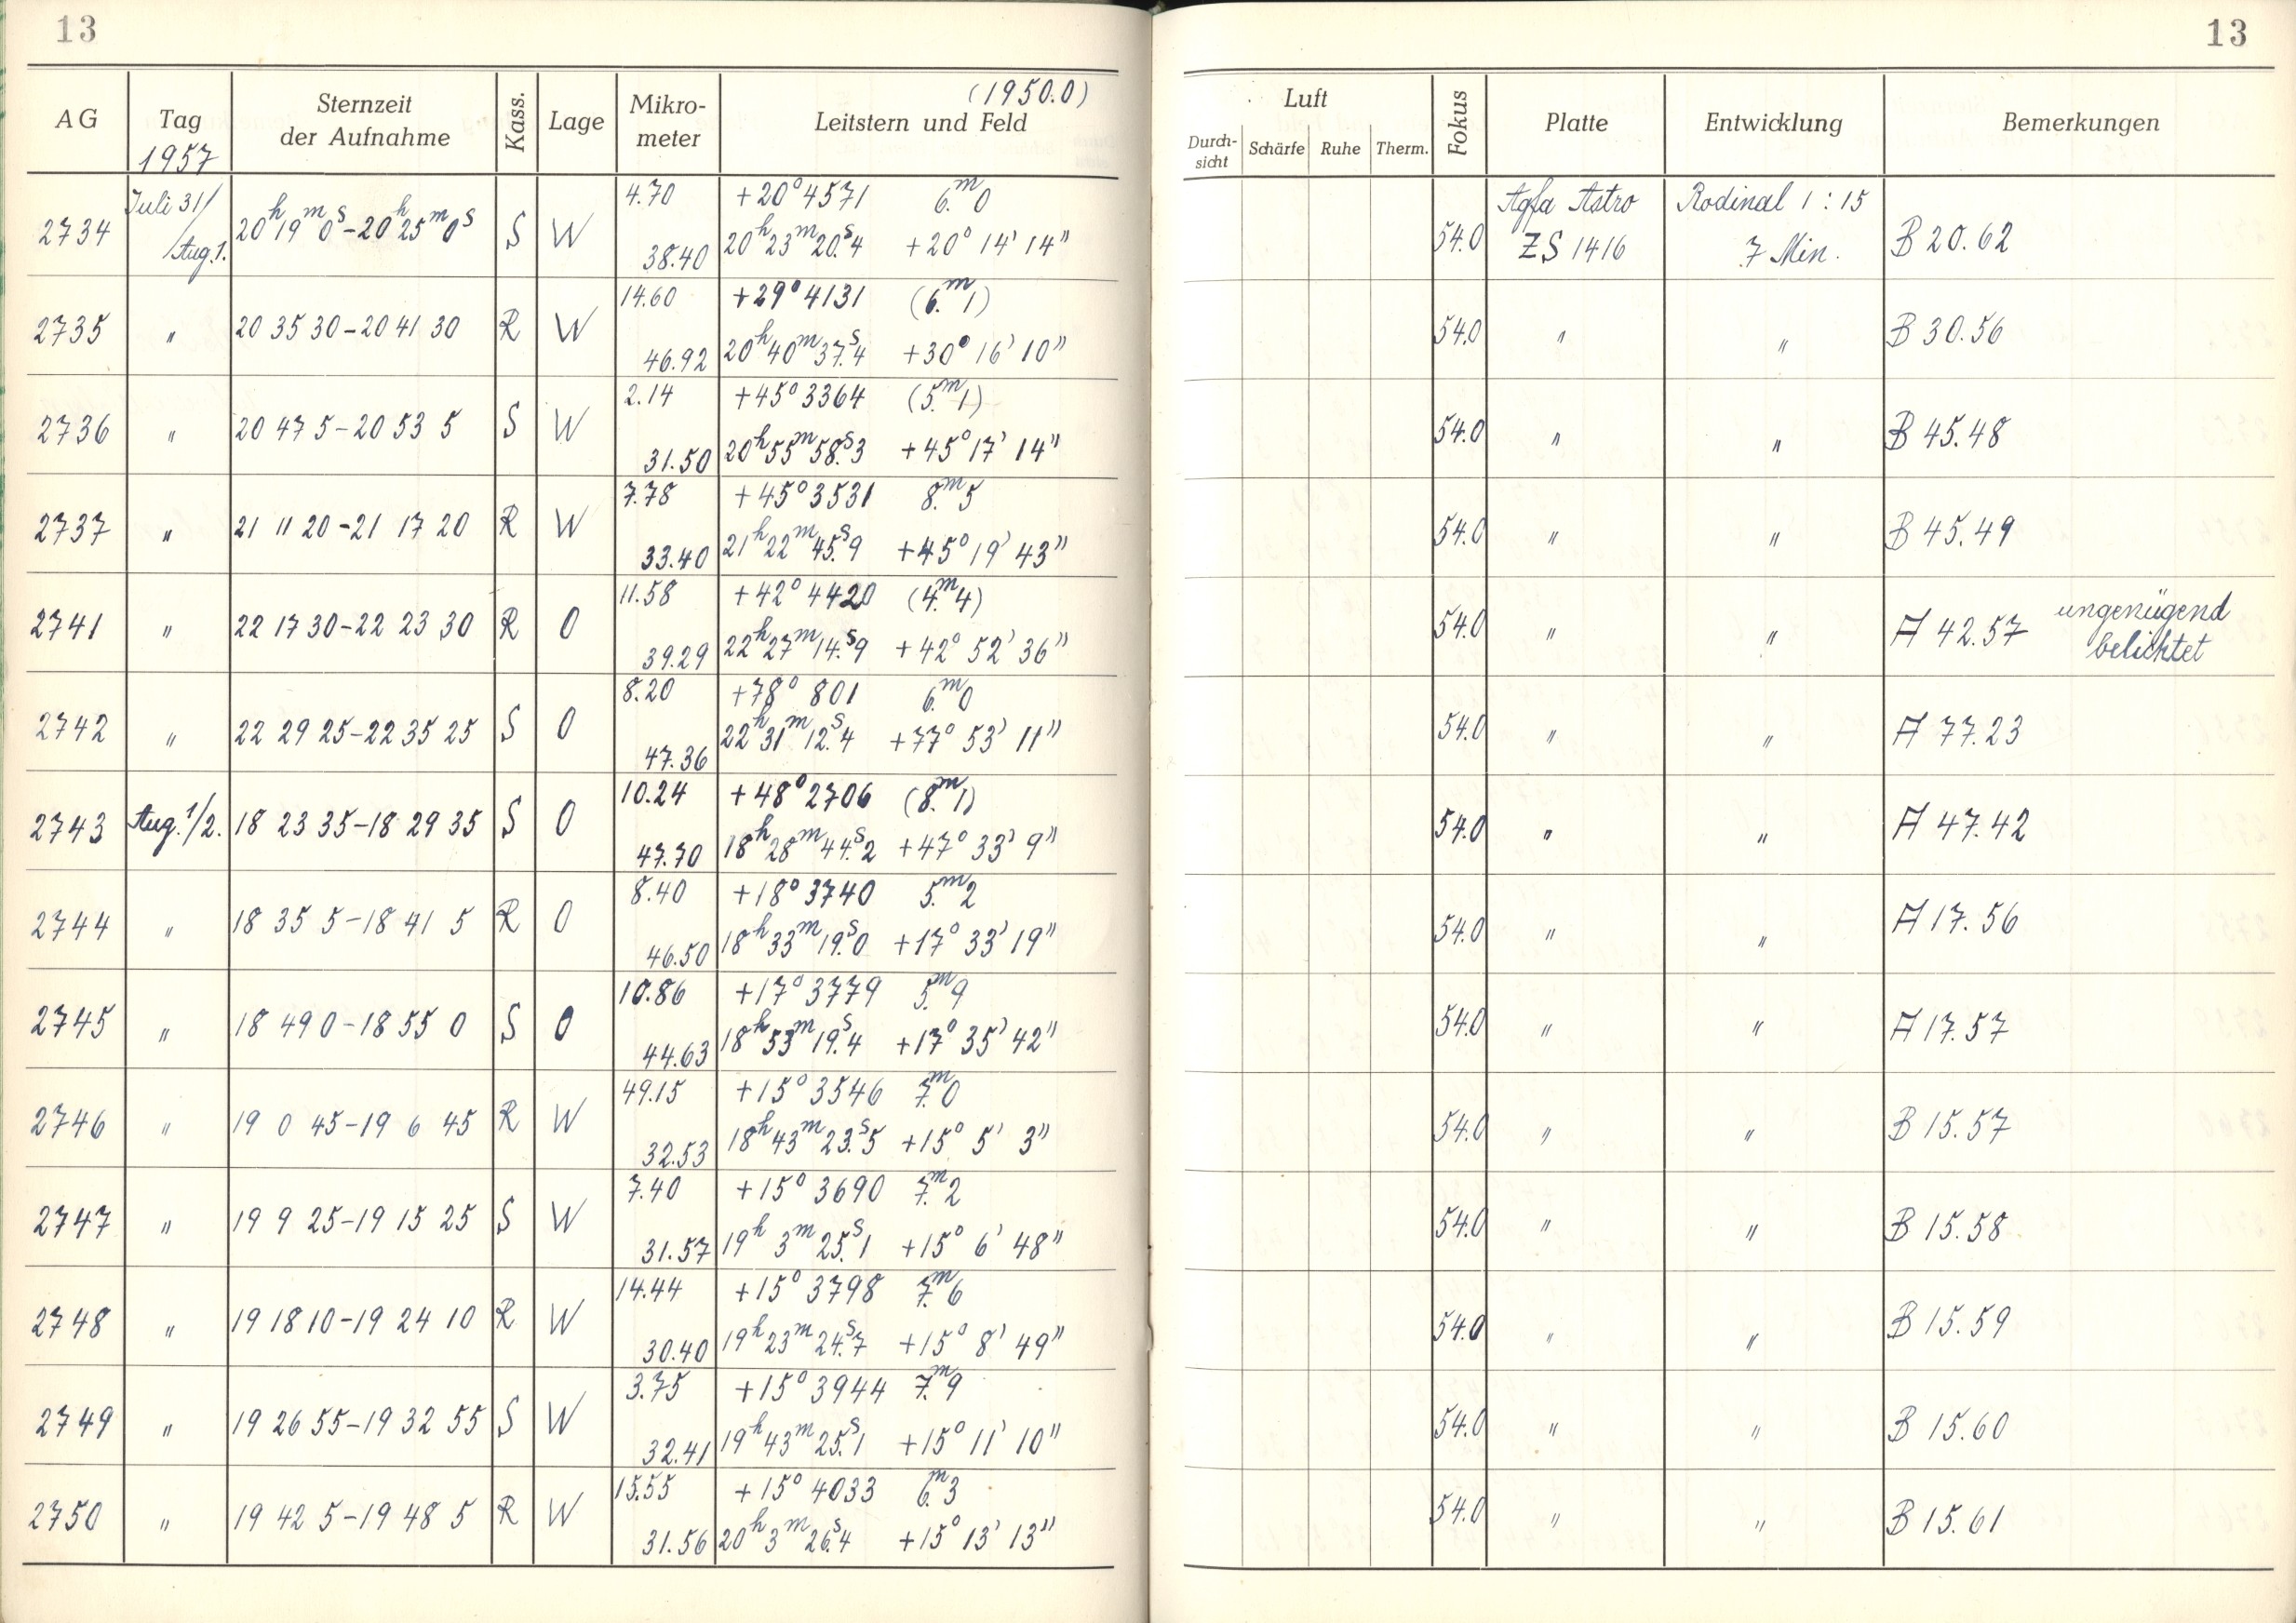 13
13
(1950.0)
AG Tag Sternzeit der Aufnahme Kass. Lage Mikro-meter Leitstern und Feld Luft Durch-sicht Schärfe Ruhe Therm. Fokus Platte Entwicklung Bemerkungen
1957
Juli 31/ 4.70 +20° 4571 6.ᵐ0 Agfa Astro Rodinal 1:15
2734 Aug. 1. 20ʰ19ᵐ0ˢ-20ʰ25ᵐ0ˢ S W 38.40 20ʰ23ᵐ20.ˢ4 +20° 14' 14" 54.0 ZS 1416 7 Min. B 20.62
14.60 +29° 4131 (6.ᵐ1)
2735 " 20 35 30-20 41 30 R W 46.92 20ʰ40ᵐ37.ˢ4 +30° 16' 10" 54.0 " " B 30.56
2.14 +45° 3364 (5.ᵐ1)
2736 " 20 47 5-20 53 5 S W 31.50 20ʰ55ᵐ58.ˢ3 +45° 17' 14" 54.0 " " B 45.48
7.78 +45° 3531 8.ᵐ5
2737 " 21 11 20-21 17 20 R W 33.40 21ʰ22ᵐ45.ˢ9 +45° 19' 43" 54.0 " " B 45.49
11.58 +42° 4420 (4.ᵐ4) ungenügend
2741 " 22 17 30-22 23 30 R O 39.29 22ʰ27ᵐ14.ˢ9 +42° 52' 36" 54.0 " " A 42.57 belichtet
8.20 +78° 801 6.ᵐ0
2742 " 22 29 25-22 35 25 S O 47.36 22ʰ31ᵐ12.ˢ4 +77° 53' 11" 54.0 " " A 77.23
10.24 +48° 2706 (8.ᵐ1)
2743 Aug. 1/2. 18 23 35-18 29 35 S O 47.70 18ʰ28ᵐ44.ˢ2 +47° 33' 9" 54.0 " " A 47.42
8.40 +18° 3740 5.ᵐ2
2744 " 18 35 5-18 41 5 R O 46.50 18ʰ33ᵐ19.ˢ0 +17° 33' 19" 54.0 " " A 17.56
10.86 +17° 3779 5.ᵐ9
2745 " 18 49 0-18 55 0 S O 44.63 18ʰ53ᵐ19.ˢ4 +17° 35' 42" 54.0 " " A 17.57
49.15 +15° 3546 7.ᵐ0
2746 " 19 0 45-19 6 45 R W 32.53 18ʰ43ᵐ23.ˢ5 +15° 5' 3" 54.0 " " B 15.57
7.40 +15° 3690 7.ᵐ2
2747 " 19 9 25-19 15 25 S W 31.57 19ʰ3ᵐ25.ˢ1 +15° 6' 48" 54.0 " " B 15.58
14.44 +15° 3798 7.ᵐ6
2748 " 19 18 10-19 24 10 R W 30.40 19ʰ23ᵐ24.ˢ7 +15° 8' 49" 54.0 " " B 15.59
3.75 +15° 3944 7.ᵐ9
2749 " 19 26 55-19 32 55 S W 32.41 19ʰ43ᵐ25.ˢ1 +15° 11' 10" 54.0 " " B 15.60
15.55 +15° 4033 6.ᵐ3
2750 " 19 42 5-19 48 5 R W 31.56 20ʰ3ᵐ26.ˢ4 +15° 13' 13" 54.0 " " B 15.61